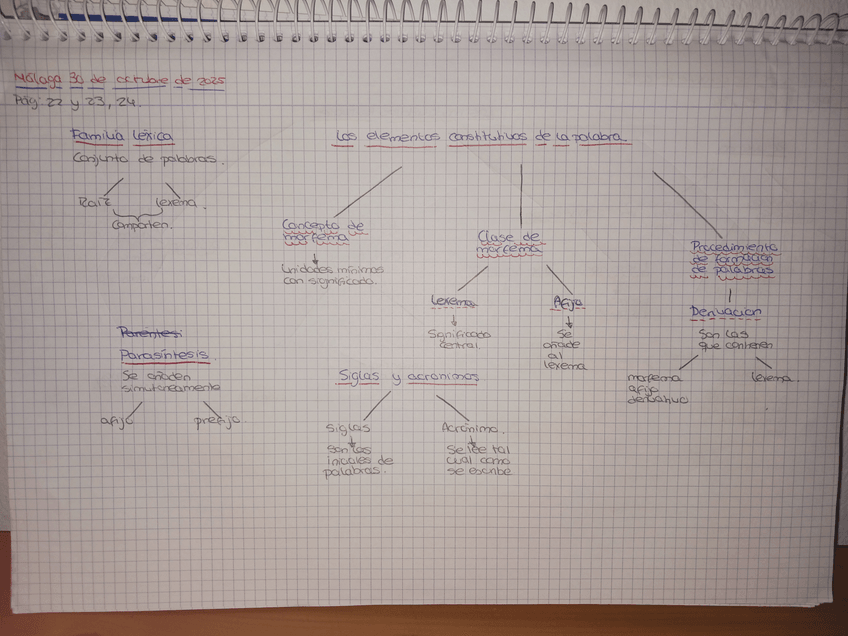 Málaga 30 de octubre de 2025
Pág: 22 y 23, 24.
Familia léxica
Conjunto de palabras.
Raíz
lexema.
comparten.
Los elementos constitutivos de la palabra.
Concepto de
morfema
Unidades mínimas
con significado.
Clase de
morfema
Lexema
Significado
central.
Afijo
Se
añade
al
lexema
Procedimiento
de formación
de palabras
Derivación
Son las
que contienen
morfema
afijo
derivativo
lexema.
Parentesi
Parasíntesis.
Se añaden
simultáneamente
afijo
prefijo.
Siglas y acrónimos
Siglas
Son las
iniciales de
palabras.
Acrónimo.
Se lee tal
cual como
se escribe